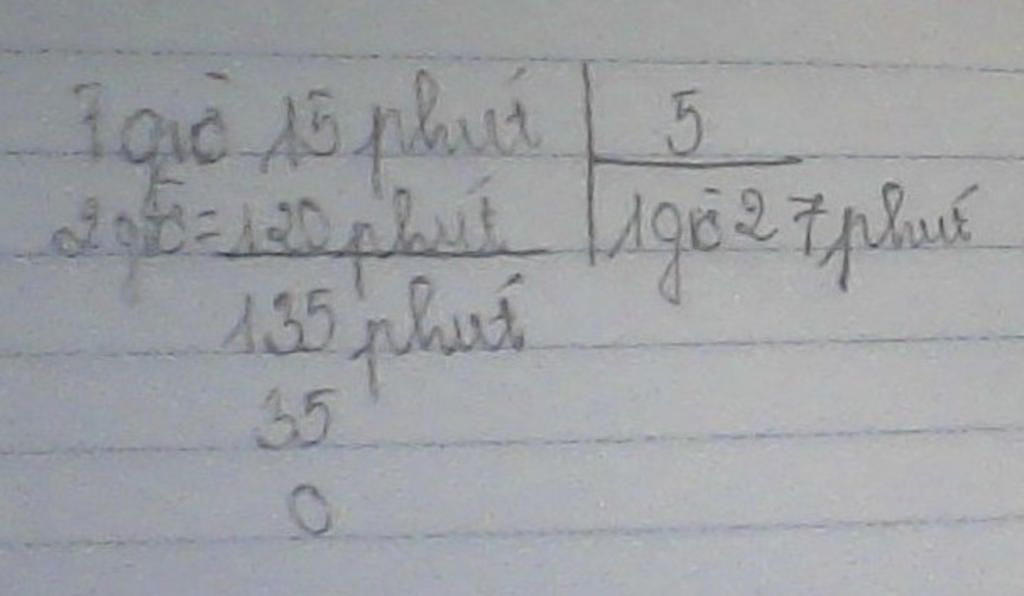 7 giờ 15 phút 5
2 giờ = 120 phút 1 giờ 27 phút
135 phút
35
0